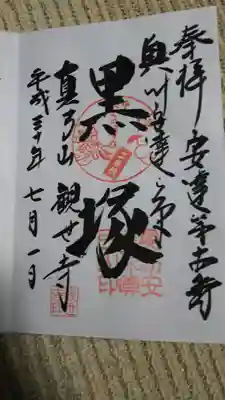 奉拝 安達
奥州安達ヶ原
黒塚
真弓山 観世寺
平成三十年 七月一日